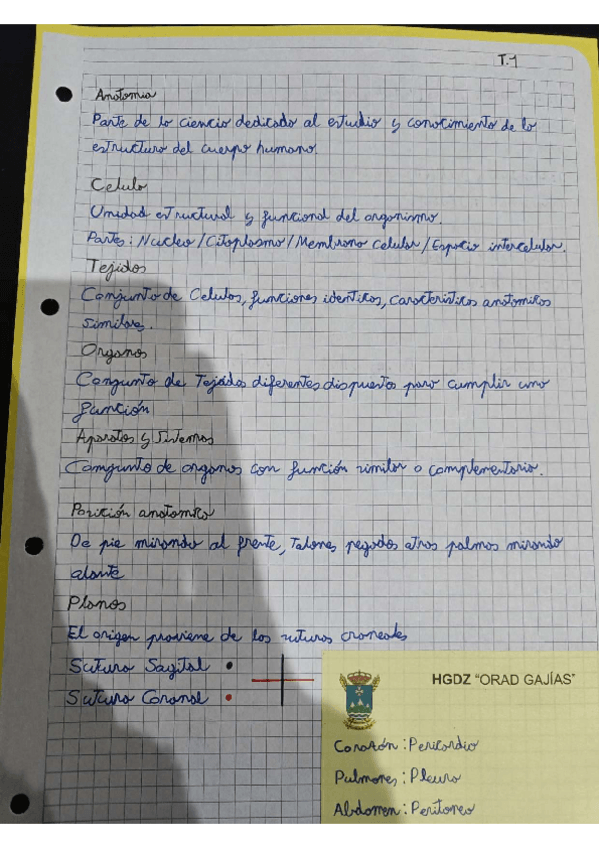 T.1
Anatomia
Parte de la ciencia dedicada al estudio y conocimiento de la
estructura del cuerpo humano.
Celula
Unidad estructural y funcional del organismo.
Partes: Nucleo/Citoplasma/Membrana Celular/Espacio intercelular.
Tejidos
Conjunto de Celulas, funciones identicas, caracteristicas anatomicas
similares.
Organos
Conjunto de Tejidos diferentes dispuestos para cumplir una
función
Aparatos y Sistemas
Conjunto de organos con función similar o complementaria.
Posición anatomica
De pie mirando al frente, Talones pegados atras palmas mirando
alante
Planos
El origen proviene de las suturas craneales
Sutura Sagital
Sutura Coronal
HGDZ "ORAD GAJÍAS"
Corazón: Pericardio
Pulmones: Pleura
Abdomen: Peritoneo